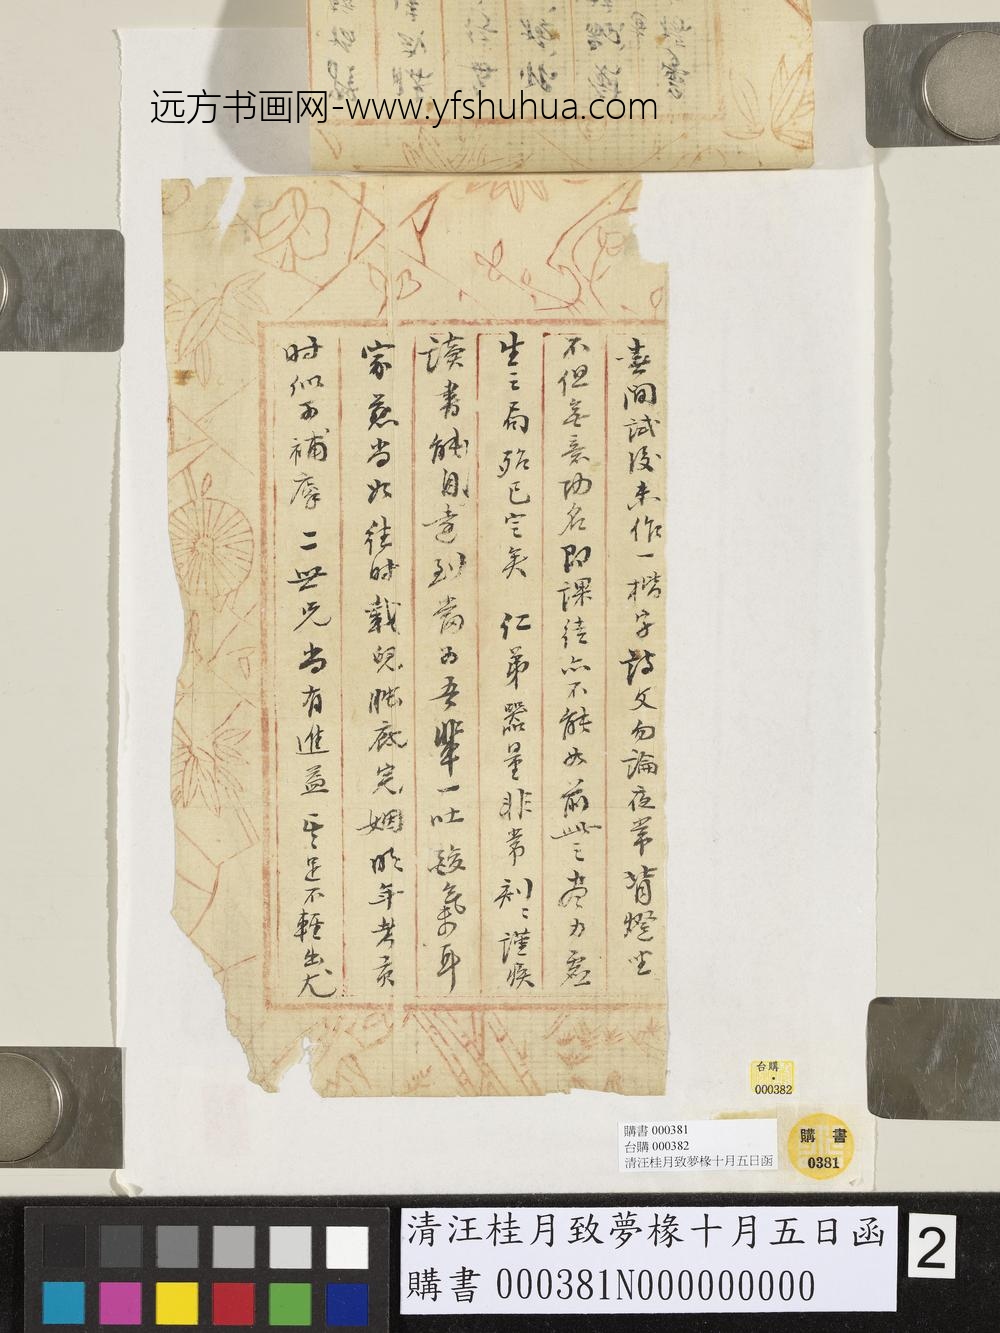 远方书画网-www.yfshuhua.com
未作一楷字詩文勿論夜常背燈坐
不但無意功名即課徒亦不能如前此之盡力
生之局殆已定矣 仁弟器量非常刻〻謹
讀書能自達到當為吾輩一吐酸氣耳
家慈尚如往時載兒臘底完姻昨年考
时似可補廩二世兄尚有進益 足不輕出尤
台購
000382
購書 000381
台購 000382
清汪桂月致夢椽十月五日函
購書
0381
清汪桂月致夢椽十月五日函
購書 000381N000000000
2